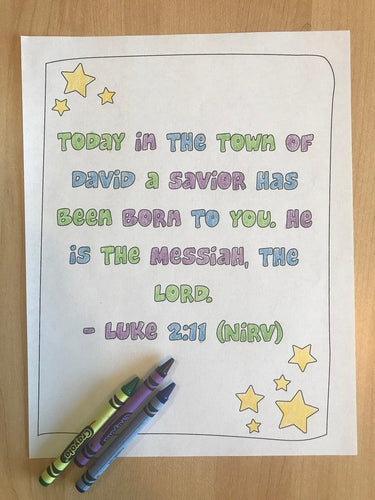 TODAY in THE TOWN OF
DAViD a SAViOR HAS
BEEN BORN TO YOU. HE
iS THE MESSiAH, THE
LORD.
- LUKE 2:11 (NiRV)
Crayola
Crayola